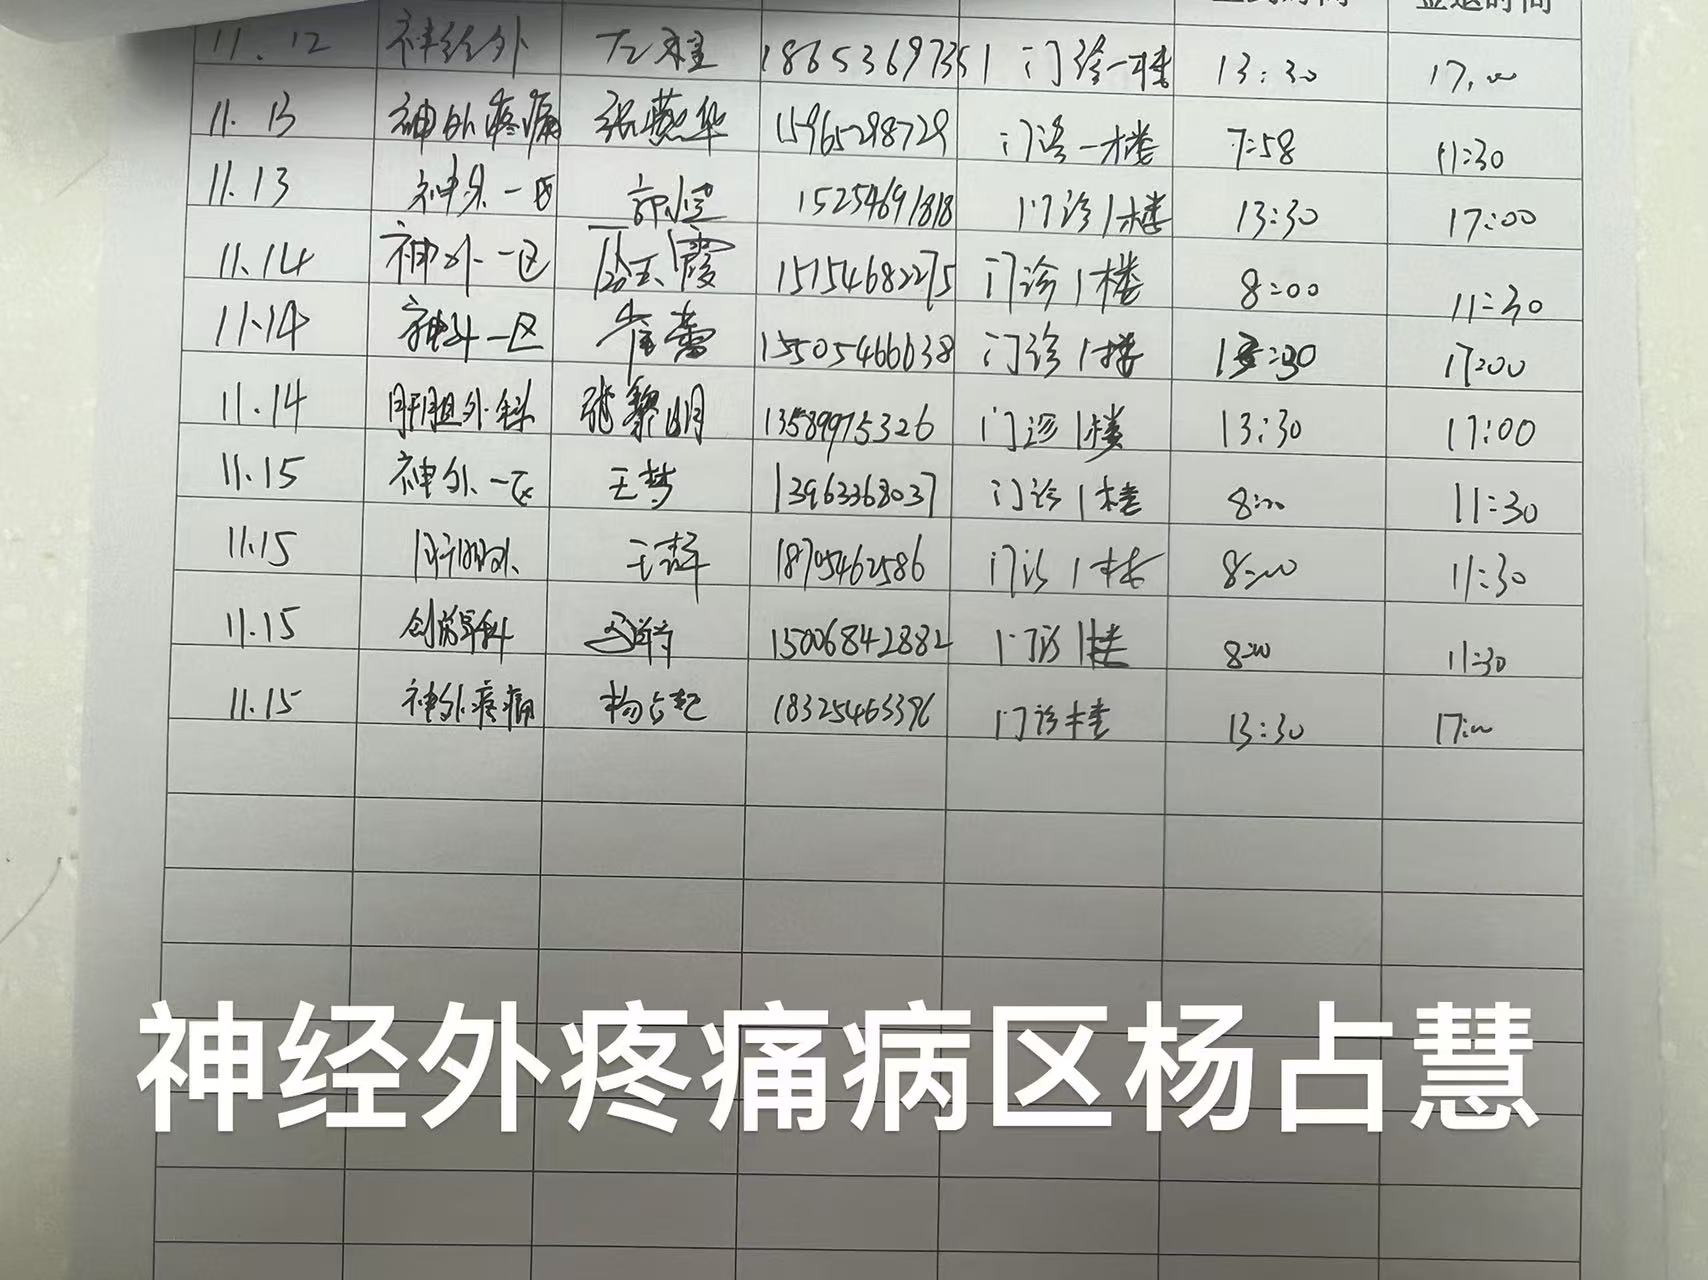 签到时间 签退时间
11.12 神经外 左桂 18653697351 门诊一楼 13:30 17:00
11.13 神外疼痛 张燕华 15965298729 门诊一楼 7:58 11:30
11.13 神外一区 15254691818 门诊1楼 13:30 17:00
11.14 神外一区 霞 15154682275 门诊1楼 8:00 11:30
11.14 神外一区 崔蕾 15505466638 门诊1楼 13:30 17:00
11.14 肝胆外科 张黎明 13589975326 门诊1楼 13:30 17:00
11.15 神外一区 王梦 13963368037 门诊1楼 8:00 11:30
11.15 肝胆外 王 18705462586 门诊1楼 8:00 11:30
11.15 15006842882 门诊1楼 8:00 11:30
11.15 神外疼痛 杨占 18325463396 门诊楼 13:30 17:00
神经外疼痛病区杨占慧